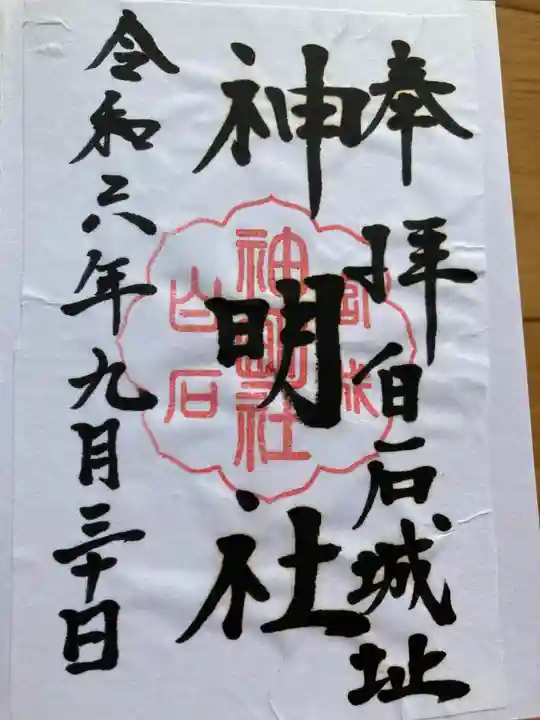 奉拝 白石城址
神明社
令和六年九月三十日
宮城
神明社
白石